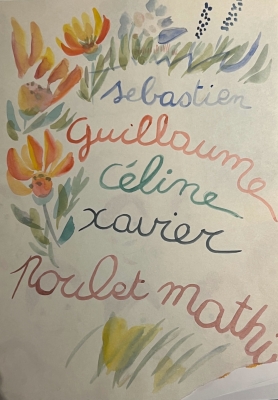 sebastien
Guillaume
Céline
xavier
Poulet Mathi